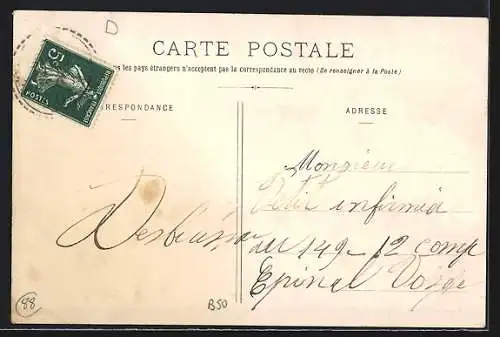 D
CARTE POSTALE
les pays étrangers n'acceptent pas la correspondance au recto (Se renseigner à la Poste)
RRESPONDANCE
ADRESSE
Monsieur
Petit infirmié
au 149 - 12 comp
Epinal Voige
88
B50